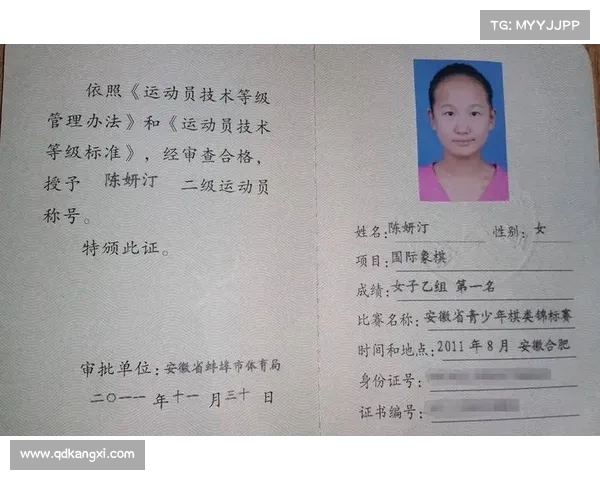 TG: MYYJJPP
依照《运动员技术等级
管理办法》和《运动员技术
等级标准》，经审查合格，
授予 陈妍汀 二级运动员
称号。
特颁此证。
审批单位:安徽省蚌埠市体育局
二〇一一年十一月三十日
姓名:陈妍汀 性别:女
项目:国际象棋
成绩:女子乙组 第一名
比赛名称:安徽省青少年棋类锦标赛
时间和地点:2011年8月 安徽合肥
身份证号:
证书编号:
www.qdkangxi.com